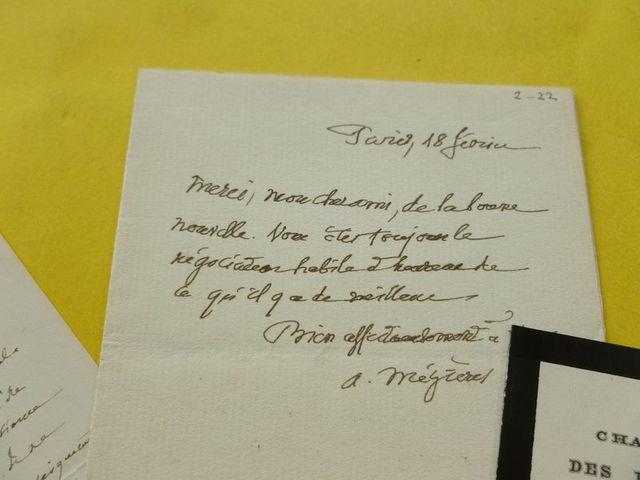 2-22
Paris, 18 février
Merci, mon cher ami, de la bonne
nouvelle. Vous êtes toujours le
négociateur habile et heureux de
ce qu'il y a de meilleur.
Bien affectueusement à
A. Mézières
CHA
DES